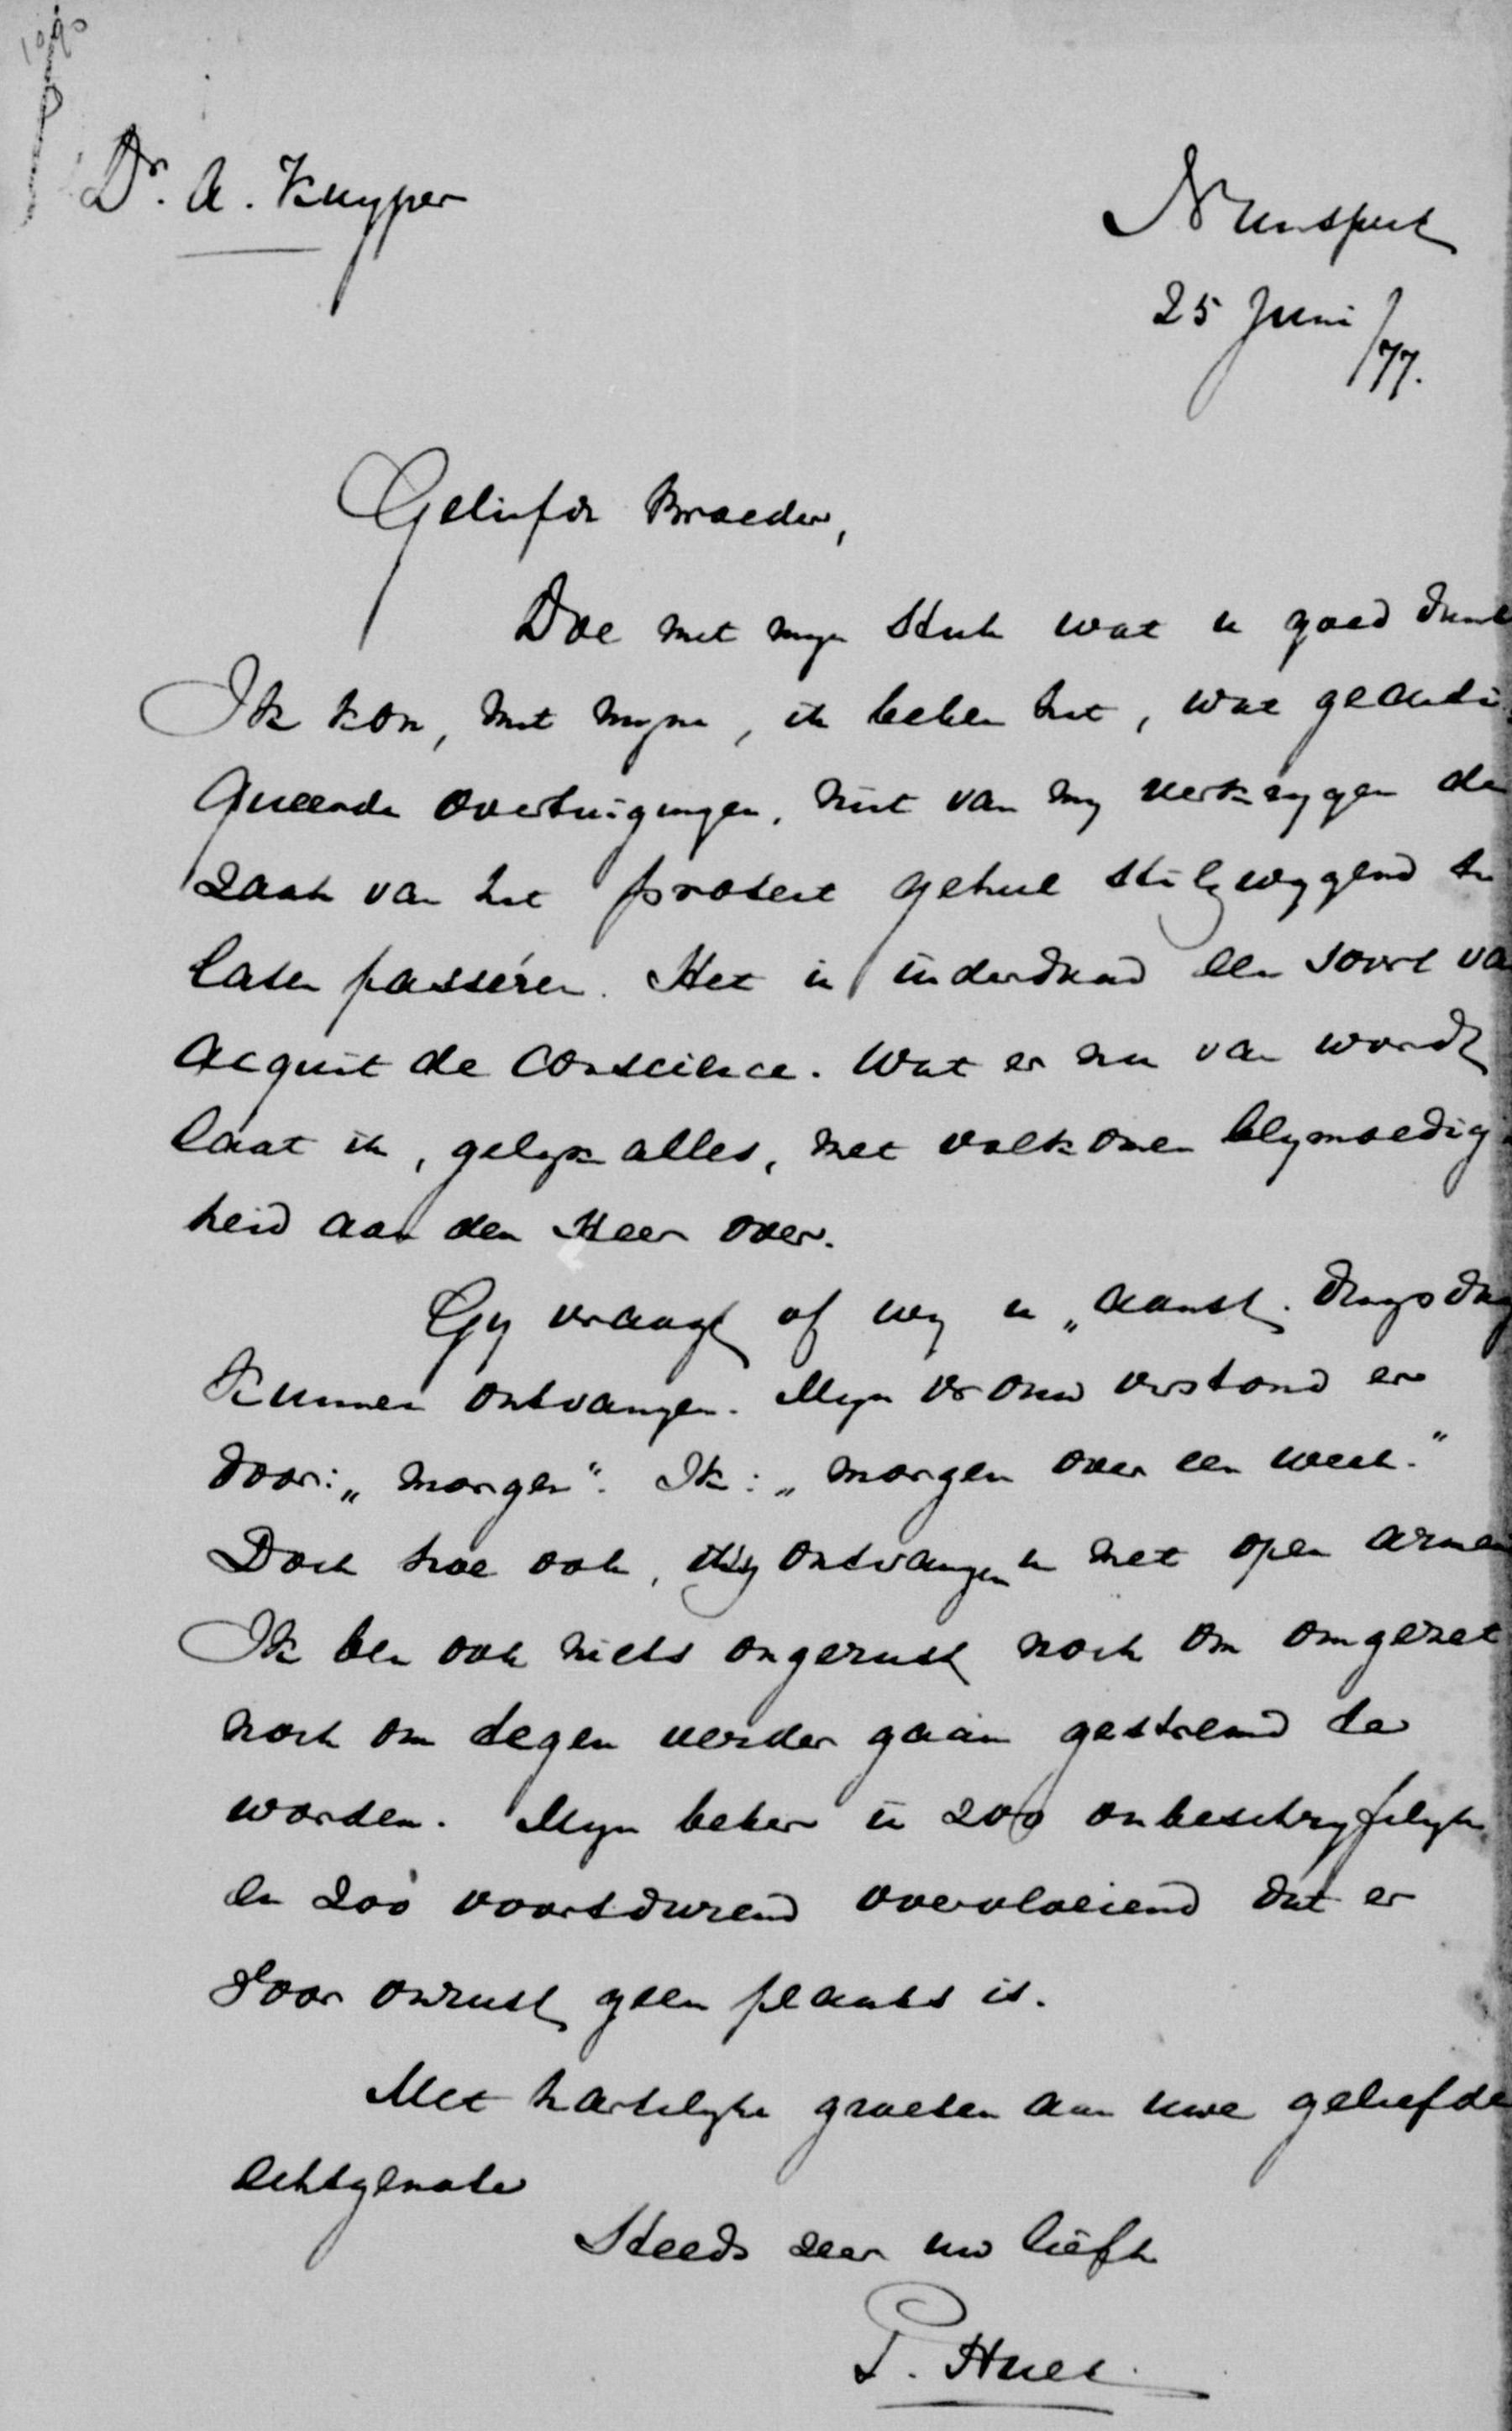 1090
Dr. A. Kuyper
Nunspeet
25 Juni /77.
Geliefde Broeder,
Doe met myn stuk wat u goed dunkt
Ik kon, met myne, ik beken het, wat geanti-
queerde overtuigingen, niet van my verkrygen de
zaak van het protest geheel stilzwygend te
laten passéren. Het is inderdaad een soort va
acquit de conscience. Wat er nu van wordt
laat ik, gelyk alles, met volkomen blymoedig
heid aan den Heer over.
Gy vraagt of wy u „aanst. dingsdag
kunnen ontvangen. Myn vrouw verstond er
door: „morgen“. Ik: „morgen over een week.“
Doch hoe ook, wy ontvangen u met open armen
Ik ben ook niets ongerust noch om omgezet
noch om tegen verder gaan gestremd te
worden. Myn beker is zoo onbeschryfelyk
en zoo voortdurend overvloeiend dat er
voor onrust geen plaats is.
Met hartelyke groeten aan uwe geliefde
echtgenote
Steeds zeer uw liefh
P. Huet.